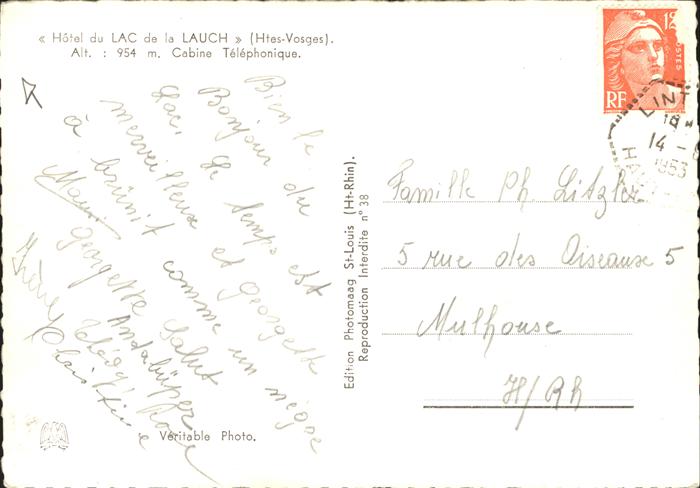 « Hôtel du LAC de la LAUCH » (Htes-Vosges).
Alt. : 954 m. Cabine Téléphonique.
Bien le
Bonjour du
Lac. Le temps est
merveilleux et georgette
à brunit comme un nègre
georgette Salut
Christine
Véritable Photo.
Edition Photomaag St-Louis (Ht-Rhin).
Reproduction Interdite n° 38
12
POSTES
RF
LINT
18 H
14 -
1953
HA
Famille Ph. Litzler
5 rue des Oiseaux 5
Mulhouse
H/Rh